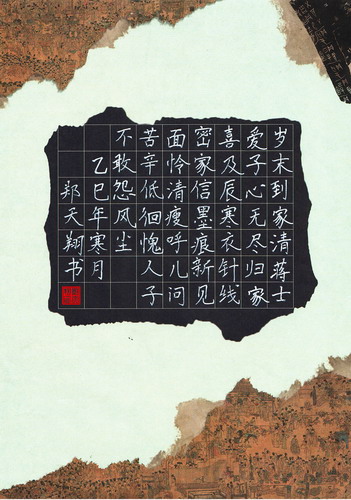 岁末到家清蒋士
爱子心无尽归家
喜及辰寒衣针线
密家信墨痕新见
面怜清瘦呼儿问
苦辛低徊愧人子
不敢怨风尘
乙巳年寒月
郑天翔书